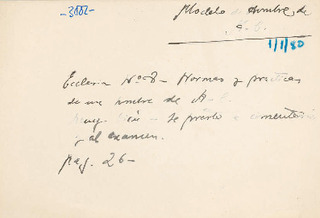 -3882-
Modelo de hombre de
A. C.
1/1/80
Ecclesia Nº 8- Normas y prácticas
de un hombre de A.
muy - Se presta a comentario
y al examen.
pag. 26-